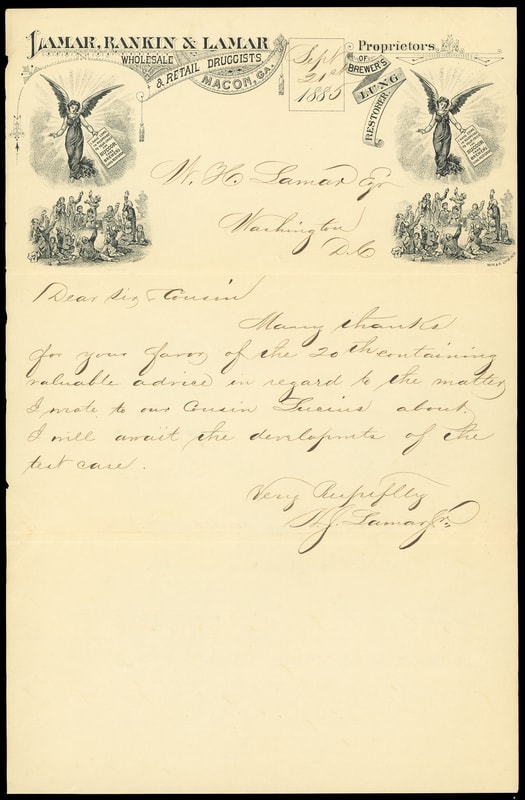 LAMAR, RANKIN & LAMAR
WHOLESALE
& RETAIL DRUGGISTS,
MACON, GA.
Sept
21st
1885
Proprietors
OF
BREWER'S
LUNG
RESTORER.
W. H. Lamar Esqr
Washington
D.C
Dear Sir & Cousin
Many thanks
for your favor of the 20th containing
valuable advice in regard to the matter
I wrote to our Cousin Lucius about.
I will await the developmts of the
test case.
Very Respectflly
H. J. Lamar Jr.,